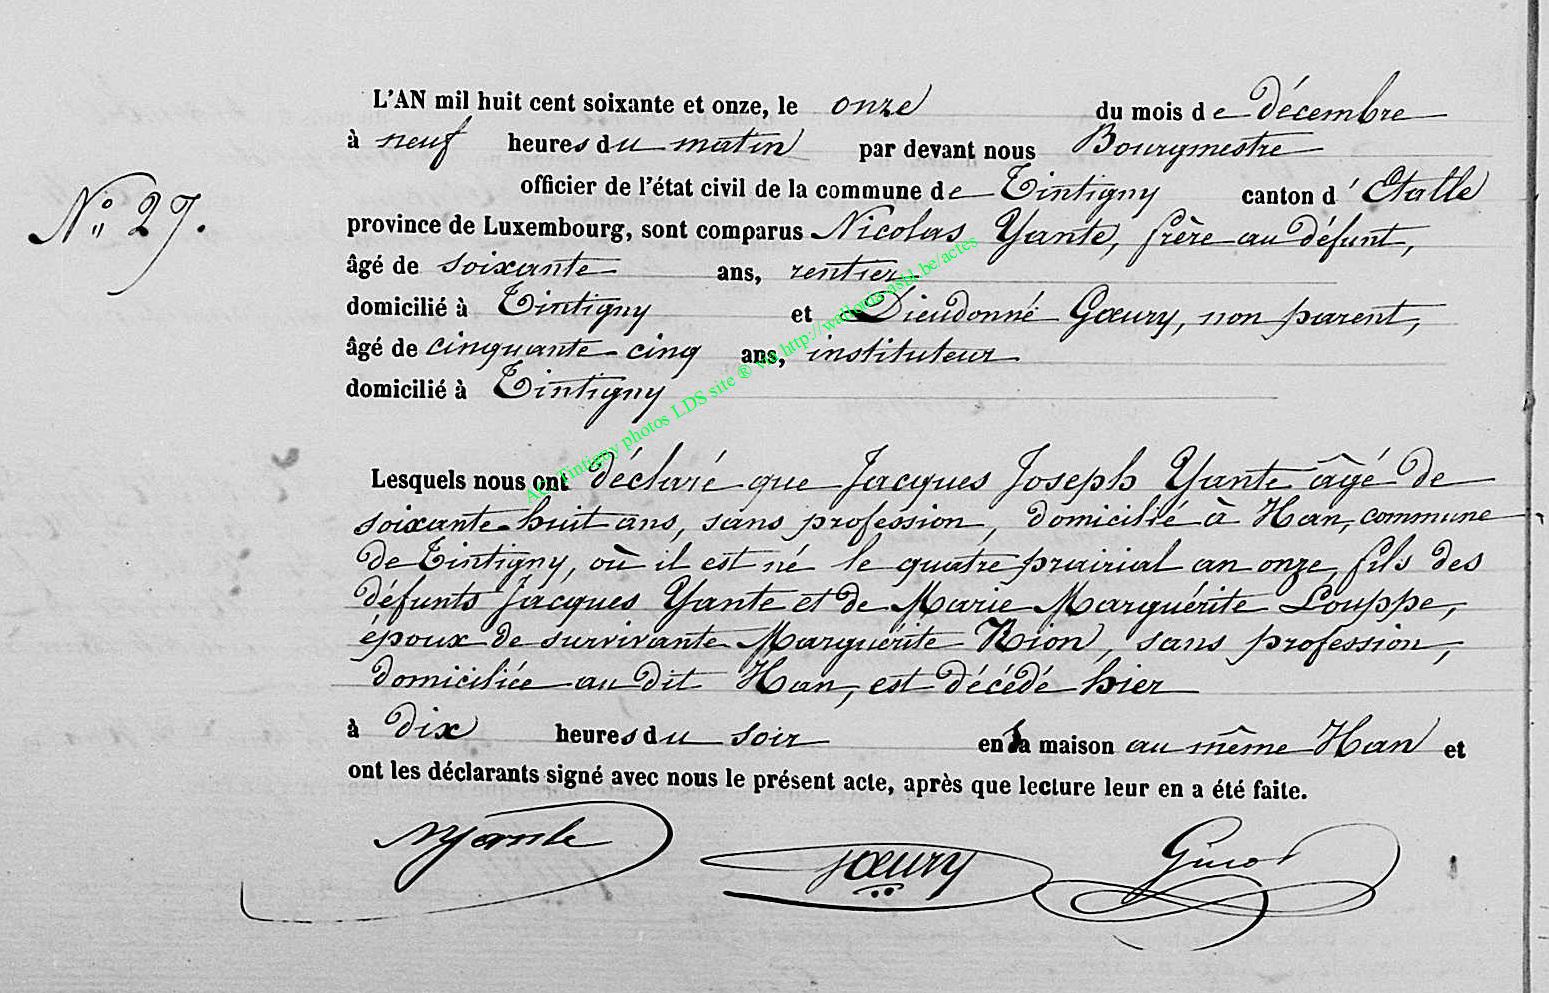 L'AN mil huit cent soixante et onze, le onze du mois de décembre
à neuf heures du matin par devant nous Bourgmestre
officier de l'état civil de la commune de Tintigny canton d'Etalle
N° 27.
province de Luxembourg, sont comparus Nicolas Yante, frère au défunt,
âgé de soixante ans, rentier
domicilié à Tintigny et Dieudonné Gœury, non parent,
âgé de cinquante-cinq ans, instituteur
domicilié à Tintigny
Lesquels nous ont déclaré que Jacques Joseph Yante âgé de
soixante-huit ans, sans profession, domicilié à Han, commune
de Tintigny, où il est né le quatre prairial an onze, fils des
défunts Jacques Yante et de Marie Marguérite Louppe,
époux de survivante Marguérite Rion, sans profession,
domiciliée au dit Han, est décédé hier
à dix heures du soir en sa maison au même Han et
ont les déclarants signé avec nous le présent acte, après que lecture leur en a été faite.
NYante Gœury
AC Tintigny photos LDS site ® via http://wallonia-asbl.be/actes